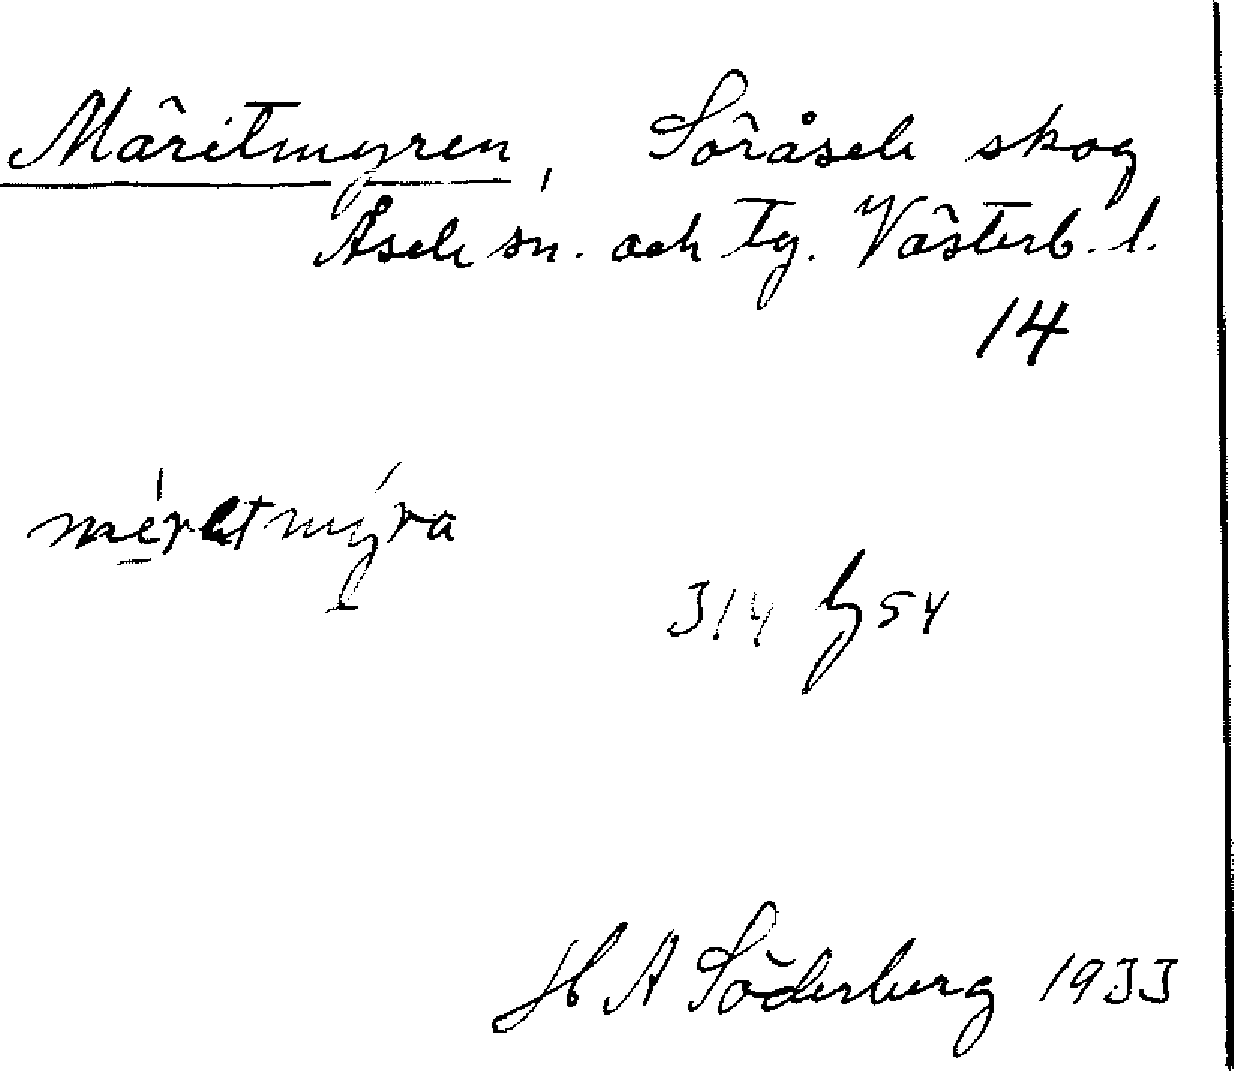 Märitmyren, Söråsele skog
Åsele sn. och tg. Västerb. l.
14
méretmýra
314 54
H A Söderberg 1933